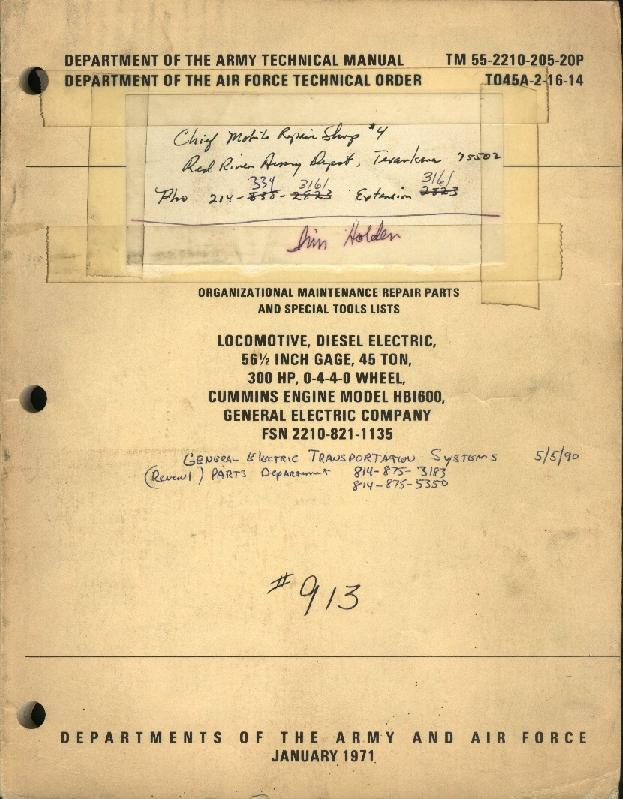 DEPARTMENT OF THE ARMY TECHNICAL MANUAL TM 55-2210-205-20P
DEPARTMENT OF THE AIR FORCE TECHNICAL ORDER TO45A-2-16-14
Chief Mobile Repair Shop #4
Red River Army Depot, Texarkana 75502
334 3161 3161
Pho 214-838-2823 Extension 2823
Jim Holden
ORGANIZATIONAL MAINTENANCE REPAIR PARTS
AND SPECIAL TOOLS LISTS
LOCOMOTIVE, DIESEL ELECTRIC,
56½ INCH GAGE, 45 TON,
300 HP, 0-4-4-0 WHEEL,
CUMMINS ENGINE MODEL HBI600,
GENERAL ELECTRIC COMPANY
FSN 2210-821-1135
GENERAL ELECTRIC TRANSPORTATION SYSTEMS 5/5/90
PARTS Department 814-875-3183
814-875-5350
#913
DEPARTMENTS OF THE ARMY AND AIR FORCE
JANUARY 1971